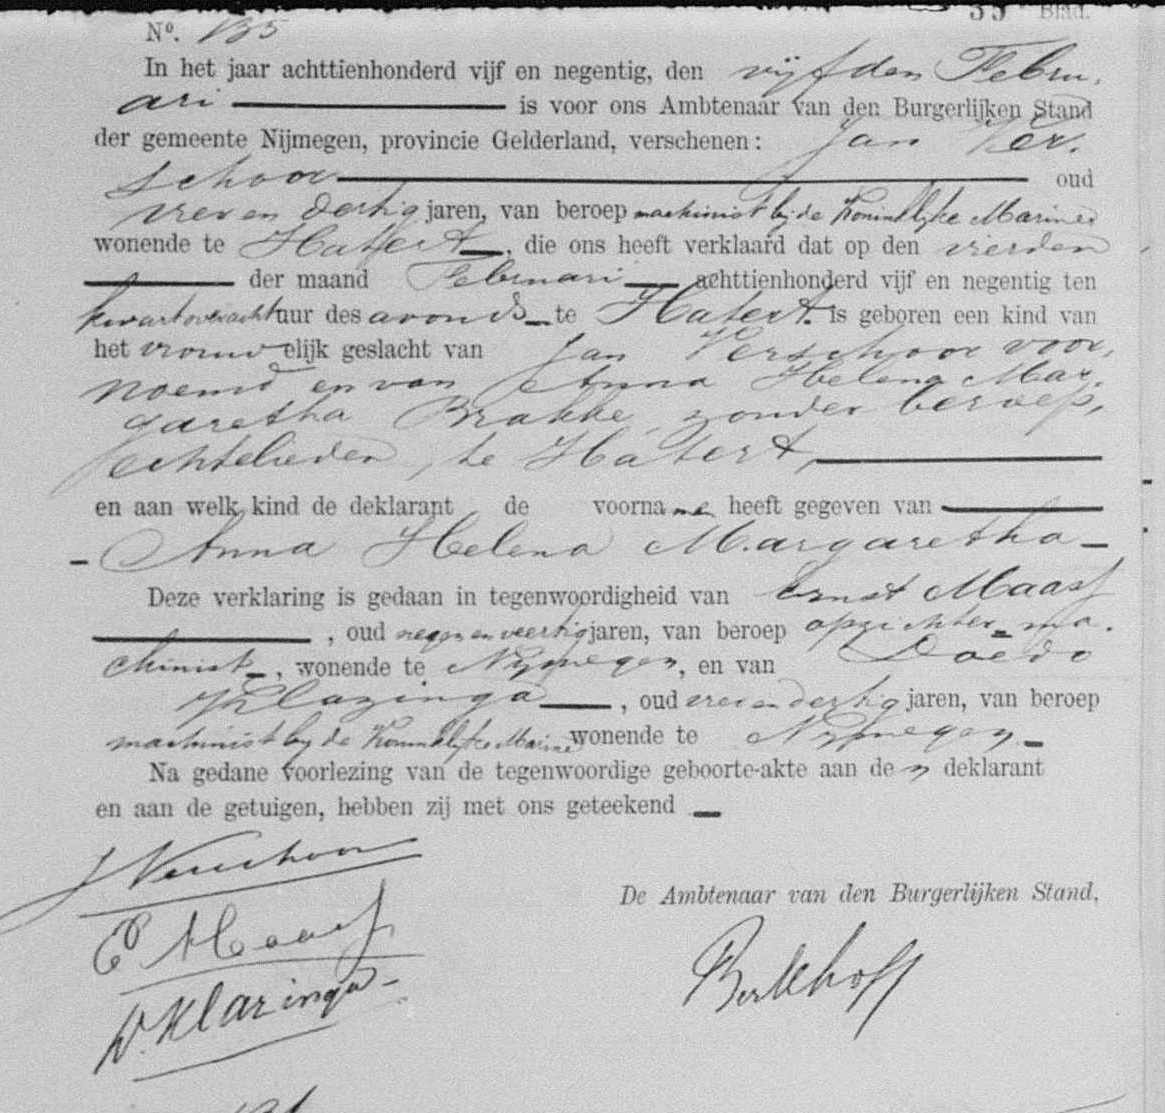 Blad.
N°. 135
In het jaar achttienhonderd vijf en negentig, den vijfden Febru,
ari is voor ons Ambtenaar van den Burgerlijken Stand
der gemeente Nijmegen, provincie Gelderland, verschenen: Jan Ver,
schoor oud
drie en dertig jaren, van beroep machinist bij de Koninklijke Marine
wonende te Hatert, die ons heeft verklaard dat op den vierden
der maand Februari achttienhonderd vijf en negentig ten
kwart over acht uur des avonds te Hatert. is geboren een kind van
het vrouwelijk geslacht van Jan Verschoor voor,
noemd en van Anna Helena Mar,
garetha Brakke, zonder beroep,
echtelieden, te Hatert,
en aan welk kind de deklarant de voorname heeft gegeven van
Anna Helena Margaretha
Deze verklaring is gedaan in tegenwoordigheid van Ernst Maass
, oud negen en veertig jaren, van beroep opzichter-ma,
chinist, wonende te Nijmegen, en van Doedo
Klazinga, oud drie en dertig jaren, van beroep
machinist bij de Koninklijke Marine wonende te Nijmegen
Na gedane voorlezing van de tegenwoordige geboorte-akte aan den deklarant
en aan de getuigen, hebben zij met ons geteekend
J Verschoor
De Ambtenaar van den Burgerlijken Stand,
E Maass
D. Klazinga
Berkhoff